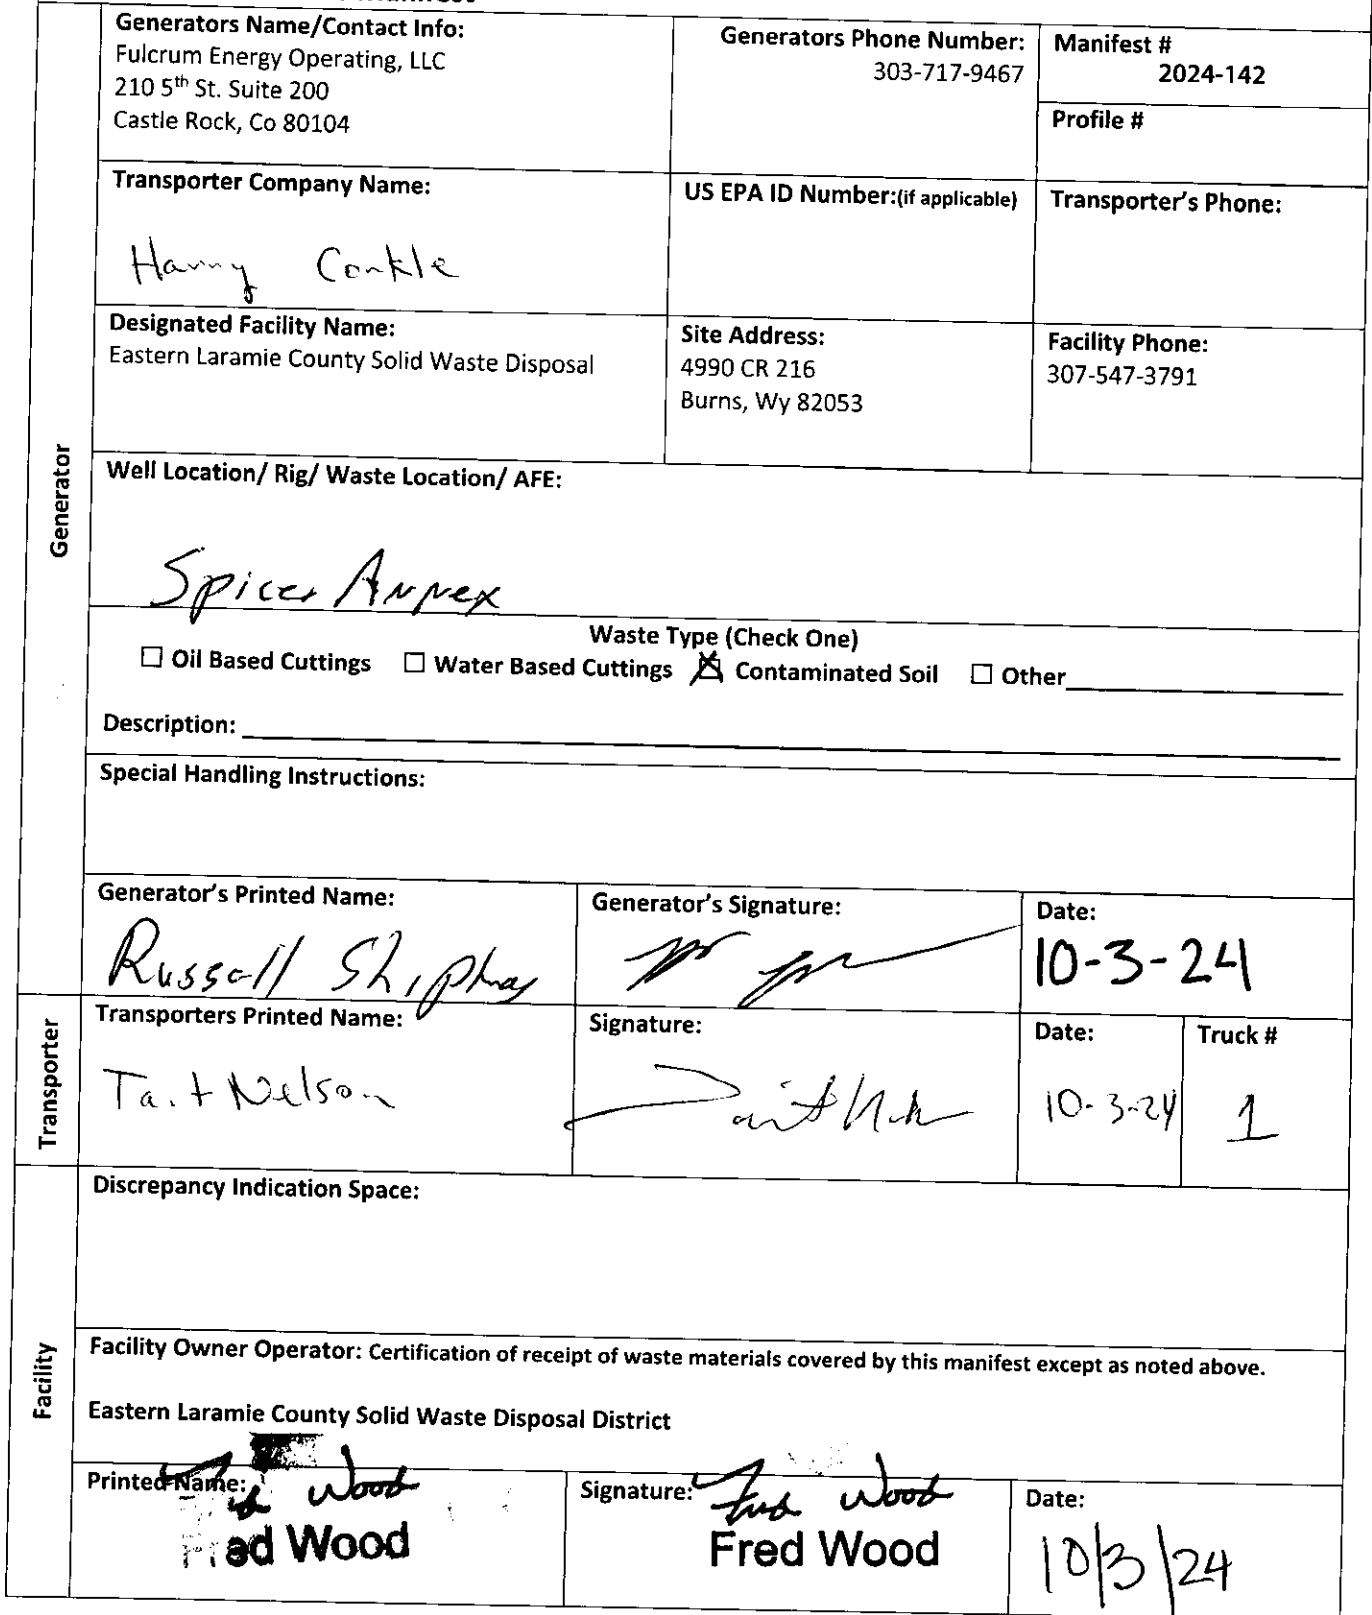 Generators Name/Contact Info:
Fulcrum Energy Operating, LLC
210 5th St. Suite 200
Castle Rock, Co 80104
Generators Phone Number:
303-717-9467
Manifest #
2024-142
Profile #
Transporter Company Name:
Harry Conkle
US EPA ID Number:(if applicable)
Transporter's Phone:
Designated Facility Name:
Eastern Laramie County Solid Waste Disposal
Site Address:
4990 CR 216
Burns, Wy 82053
Facility Phone:
307-547-3791
Generator
Well Location/ Rig/ Waste Location/ AFE:
Spicer Annex
Waste Type (Check One)
☐ Oil Based Cuttings ☐ Water Based Cuttings ☒ Contaminated Soil ☐ Other
Description:
Special Handling Instructions:
Generator's Printed Name:
Russell
Generator's Signature:
Date:
10-3-24
Transporter
Transporters Printed Name:
Tait Nelson
Signature:
Date:
10-3-24
Truck #
1
Facility
Discrepancy Indication Space:
Facility Owner Operator: Certification of receipt of waste materials covered by this manifest except as noted above.
Eastern Laramie County Solid Waste Disposal District
Printed Name:
Fred Wood
Fred Wood
Signature:
Fred Wood
Fred Wood
Date:
10/3/24